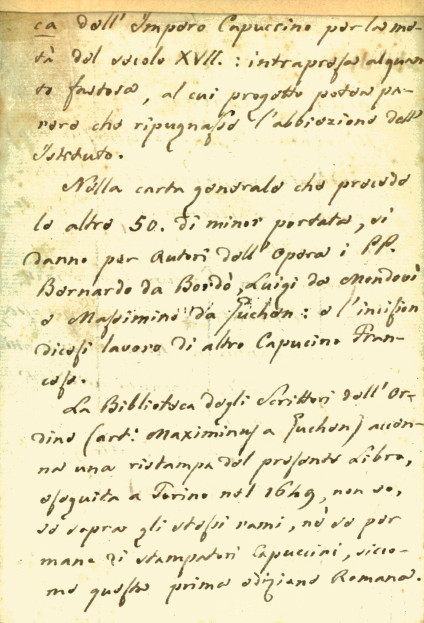 ca dell'Impero Capuccino per la me-
tà del secolo XVII.: intrapresa alquan
to fastosa, al cui progetto potea pa-
rere che ripugnasse l'abbiezione dell'
Istituto.
Nella carta generale che precede
le altre 50. di minor portata, si
danno per Autori dell'Opera i PP.
Bernardo da Bordò, Luigi da Mondovì
e Massimino da Guchen: e l'incision
dicesi lavoro di altro Capucino Fran-
cese.
La Biblioteca degli Scrittori dell'Or-
dine (art: Maximinus a Guchen) accen-
na una ristampa del presente Libro,
eseguita a Torino nel 1649, non so,
se sopra gli stessi rami, nè se per
mane di stampatori Capuccini, sicco-
me questa prima edizione Romana.